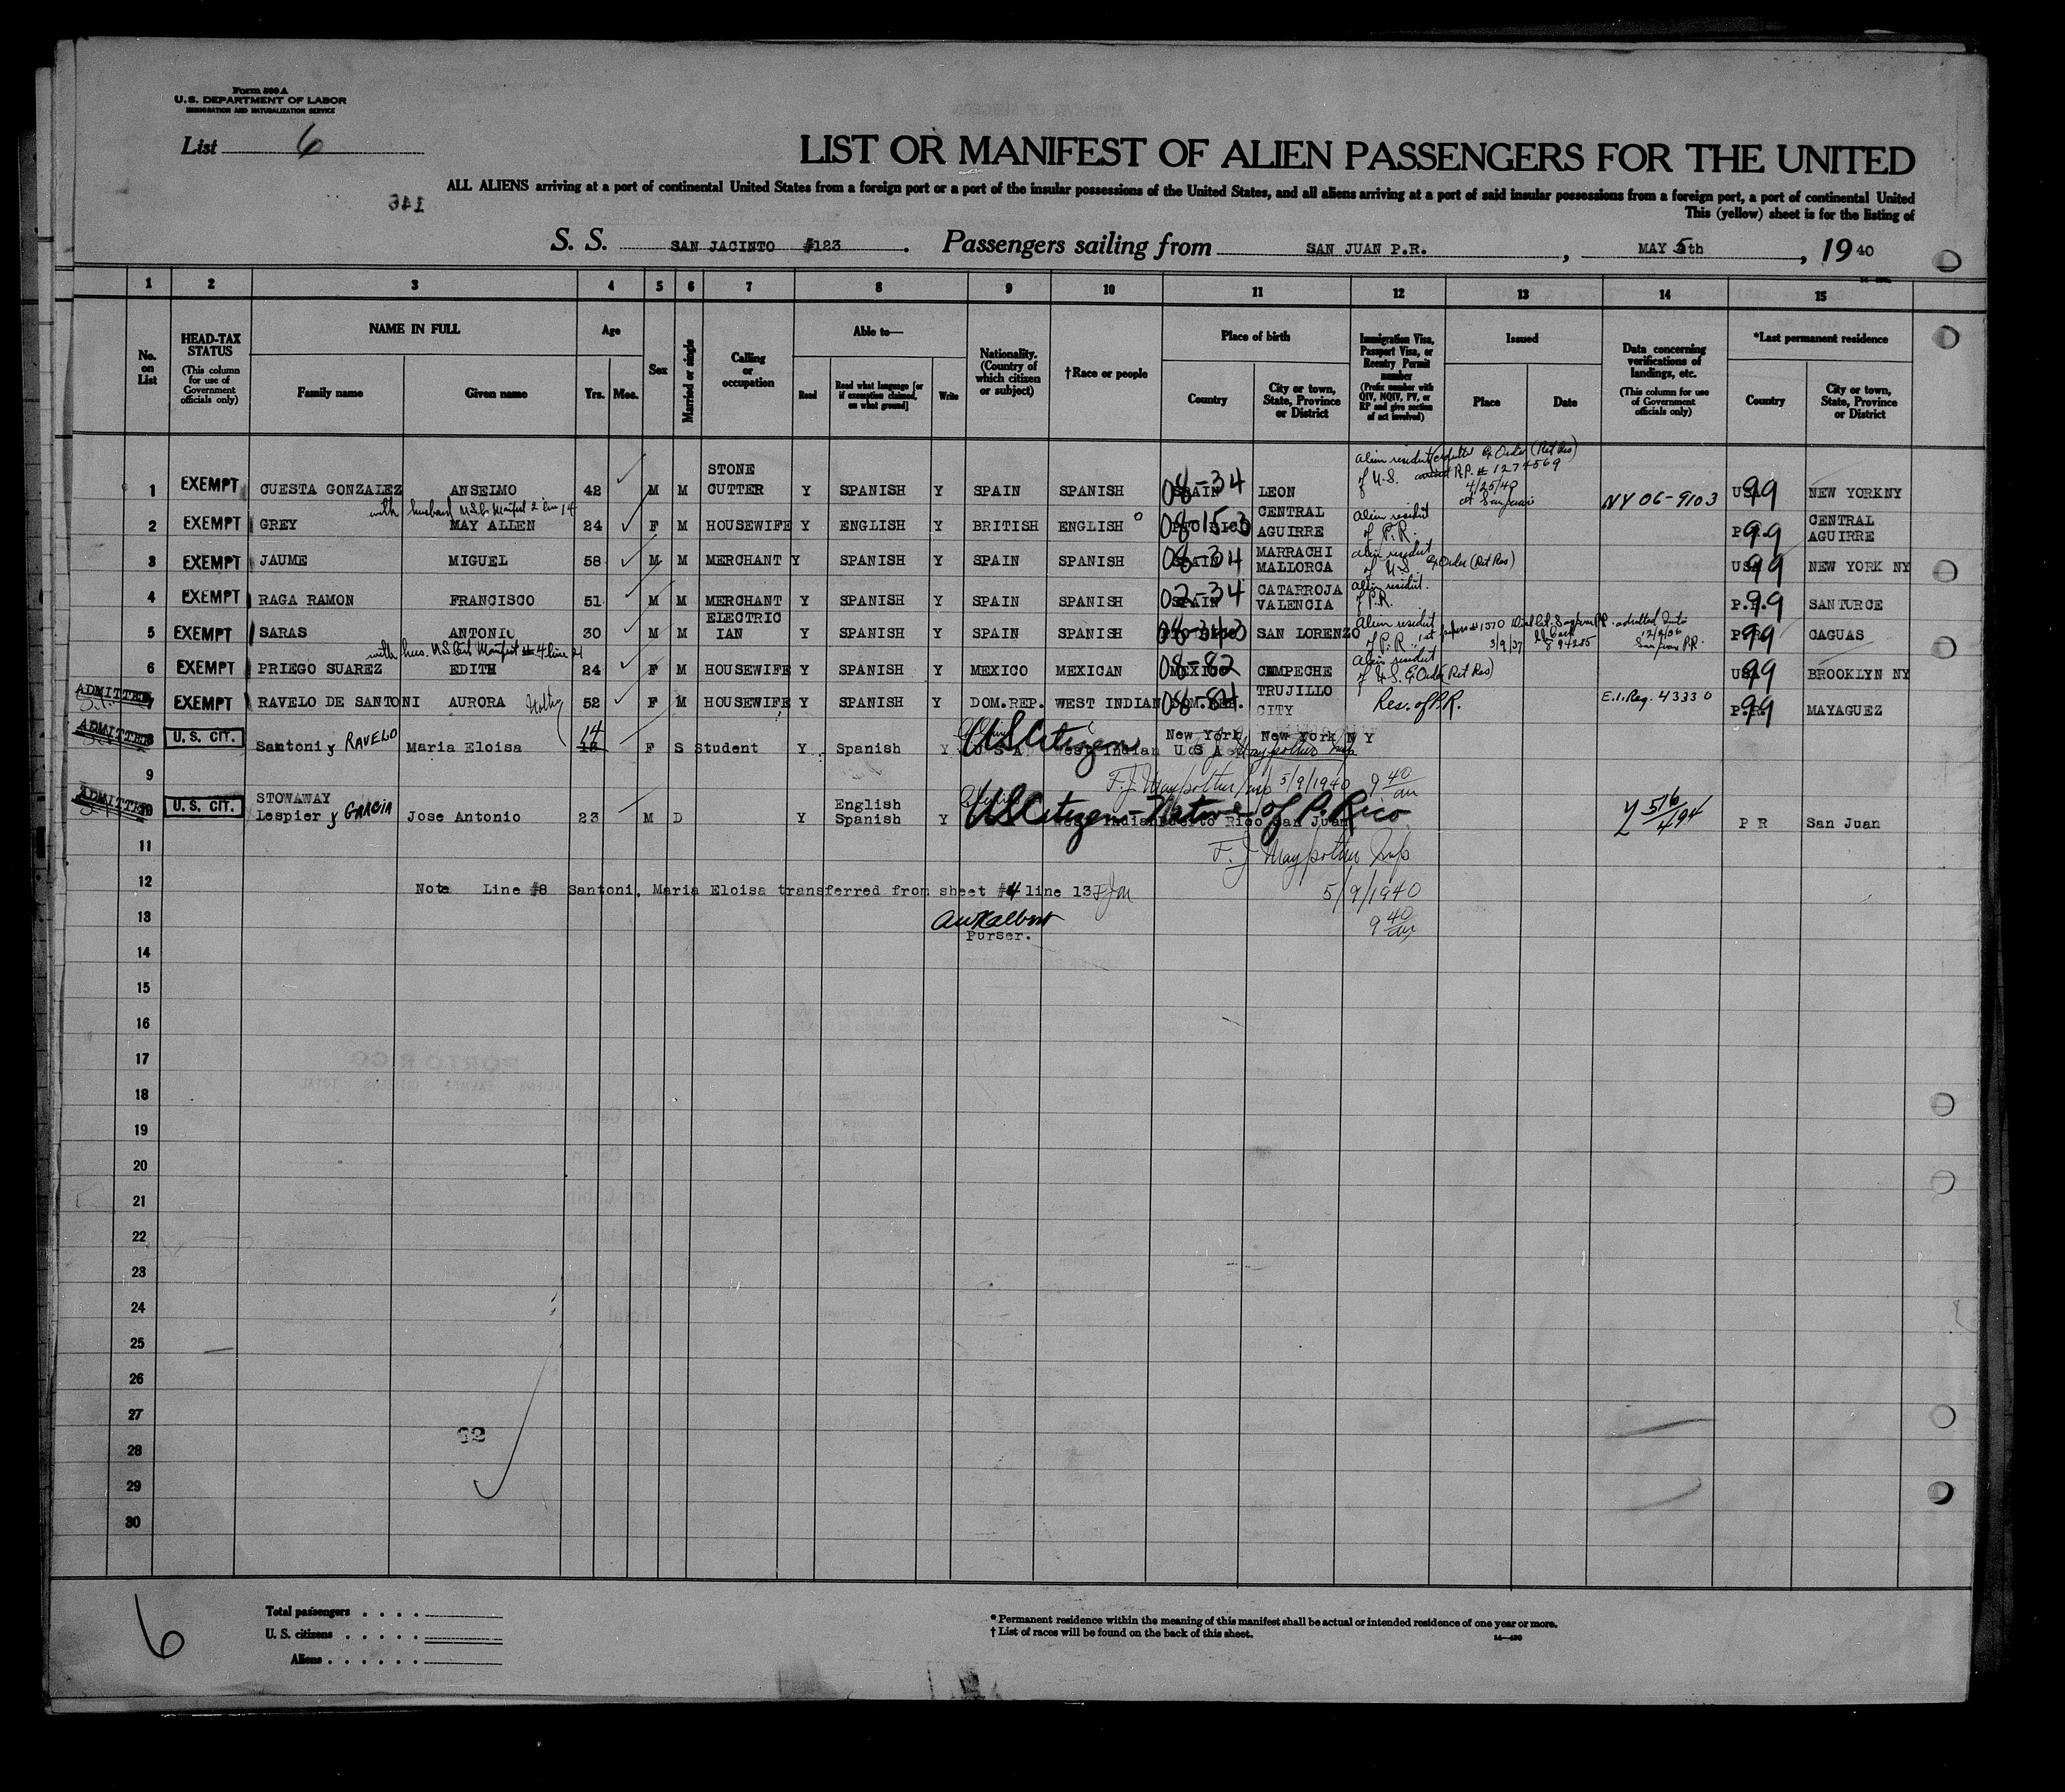 Form 500 A
U.S. DEPARTMENT OF LABOR
IMMIGRATION AND NATURALIZATION SERVICE
List 6
LIST OR MANIFEST OF ALIEN PASSENGERS FOR THE UNITED
ALL ALIENS arriving at a port of continental United States from a foreign port or a port of the insular possessions of the United States, and all aliens arriving at a port of said insular possessions from a foreign port, a port of continental United
This (yellow) sheet is for the listing of
146
S. S. SAN JACINTO #123. Passengers sailing from SAN JUAN P.R., MAY 5th, 1940
1 2 3 4 5 6 7 8 9 10 11 12 13 14 15
No. on List
HEAD-TAX STATUS (This column for use of Government officials only)
NAME IN FULL
Family name Given name
Age
Yrs. Mos.
Sex
Married or single
Calling or occupation
Able to—
Read Read what language [or if exemption claimed, on what ground] Write
Nationality. (Country of which citizen or subject)
†Race or people
Place of birth
Country City or town, State, Province or District
Immigration Visa, Passport Visa, or Reentry Permit number (Prefix number with QIV, NQIV, PV, or RP and give section of act involved)
Issued
Place Date
Data concerning verifications of landings, etc. (This column for use of Government officials only)
*Last permanent residence
Country City or town, State, Province or District
1 EXEMPT CUESTA GONZALEZ ANSELMO 42 M M STONE CUTTER Y SPANISH Y SPAIN SPANISH SPAIN 08-34 LEON alien resident of U.S. Ex Order (Ret Res) R.P. # 1274569 4/25/40 at San Juan NY 06-9103 USA 99 NEW YORK NY
with husband USC Manifest 2 line 14
2 EXEMPT GREY MAY ALLEN 24 F M HOUSEWIFE Y ENGLISH Y BRITISH ENGLISH 08-153 CENTRAL AGUIRRE alien resident of P.R. P.R. 99 CENTRAL AGUIRRE
3 EXEMPT JAUME MIGUEL 58 M M MERCHANT Y SPANISH Y SPAIN SPANISH SPAIN 08-34 MARRACHI MALLORCA alien resident of U.S. Ex Order (Ret Res) USA 99 NEW YORK NY
4 EXEMPT RAGA RAMON FRANCISCO 51 M M MERCHANT Y SPANISH Y SPAIN SPANISH SPAIN 02-34 CATARROJA VALENCIA alien resident of P.R. P.R. 99 SANTURCE
5 EXEMPT SARAS ANTONIO 30 M M ELECTRIC IAN Y SPANISH Y SPAIN SPANISH 08-343 SAN LORENZO alien resident of P.R. 1st papers #1570 3/9/37 admitted into San Juan P.R. 12/9/06 P.R. 99 CAGUAS
with hus. US Cit Manifest #4 line 21
6 EXEMPT PRIEGO SUAREZ EDITH 24 F M HOUSEWIFE Y SPANISH Y MEXICO MEXICAN MEXICO 08-82 CAMPECHE alien resident of U.S. Ex Order (Ret Res) USA 99 BROOKLYN NY
ADMITTED EXEMPT RAVELO DE SANTONI AURORA Mother 52 F M HOUSEWIFE Y SPANISH Y DOM.REP. WEST INDIAN DOM.REP. 08-84 TRUJILLO CITY Res. of P.R. E.I. Reg. 43330 P.R. 99 MAYAGUEZ
ADMITTED 8 U. S. CIT. Santoni y RAVELO Maria Eloisa 14 F S Student Y Spanish Y U S A West Indian US Citizen New York U S A New York N Y Maypother Insp
9 F.J. Maypother Insp 5/9/1940 9 40 am
ADMITTED 10 U. S. CIT. STOWAWAY Lespier y GARCIA Jose Antonio 23 M D Y English Spanish Y US Citizen-Native of P. Rico West Indian Puerto Rico San Juan P R San Juan
11 F. J Maypother Insp
12 Note Line #8 Santoni, Maria Eloisa transferred from sheet #4 line 13 FJM 5/9/1940
13 9 40 am
Purser.
14
15
16
17
18
19
20
21
22
23
24
25
26
27
28
29
30
92
6
Total passengers
U. S. citizens
Aliens
* Permanent residence within the meaning of this manifest shall be actual or intended residence of one year or more.
† List of races will be found on the back of this sheet.